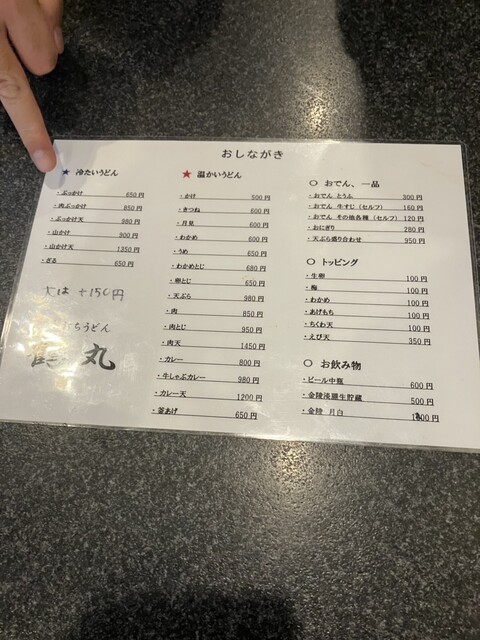 おしながき
★ 冷たいうどん
・ぶっかけ 650円
・肉ぶっかけ 850円
・ぶっかけ天 980円
・山かけ 900円
・山かけ天 1350円
・ざる 650円
大は +150円
うどん
丸
★ 温かいうどん
・かけ 500円
・きつね 600円
・月見 600円
・わかめ 600円
・うめ 650円
・わかめとじ 680円
・卵とじ 650円
・天ぷら 980円
・肉 850円
・肉とじ 950円
・肉天 1450円
・カレー 800円
・牛しゃぶカレー 980円
・カレー天 1200円
・釜あげ 650円
○ おでん、一品
・おでん とうふ 300円
・おでん 牛すじ(セルフ) 160円
・おでん その他各種(セルフ) 120円
・おにぎり 280円
・天ぷら盛り合わせ 950円
○ トッピング
・生卵 100円
・梅 100円
・わかめ 100円
・あげもち 100円
・ちくわ天 100円
・えび天 350円
○ お飲み物
・ビール中瓶 600円
・金陵淡麗生貯蔵 500円
・金陵 月白